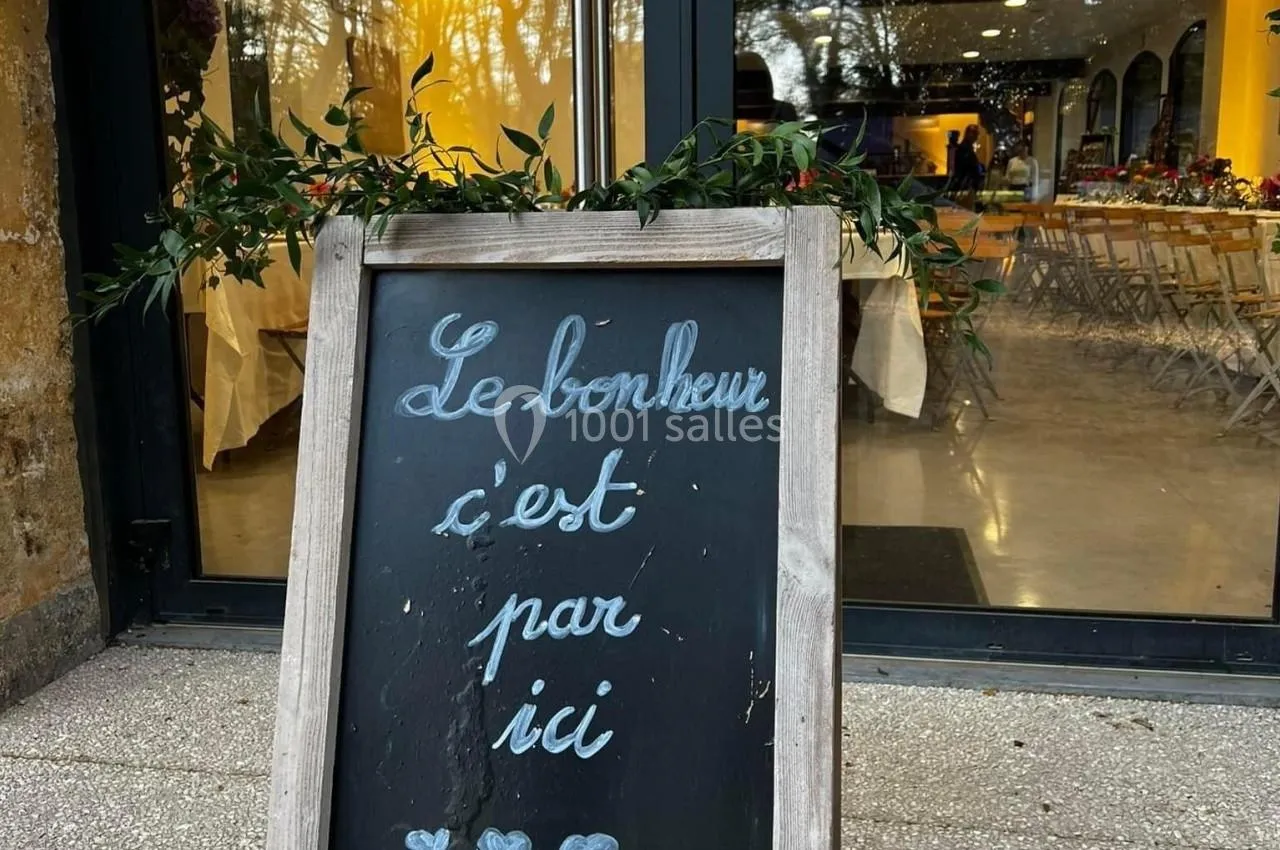 Le bonheur
1001 salles
c'est
par
ici